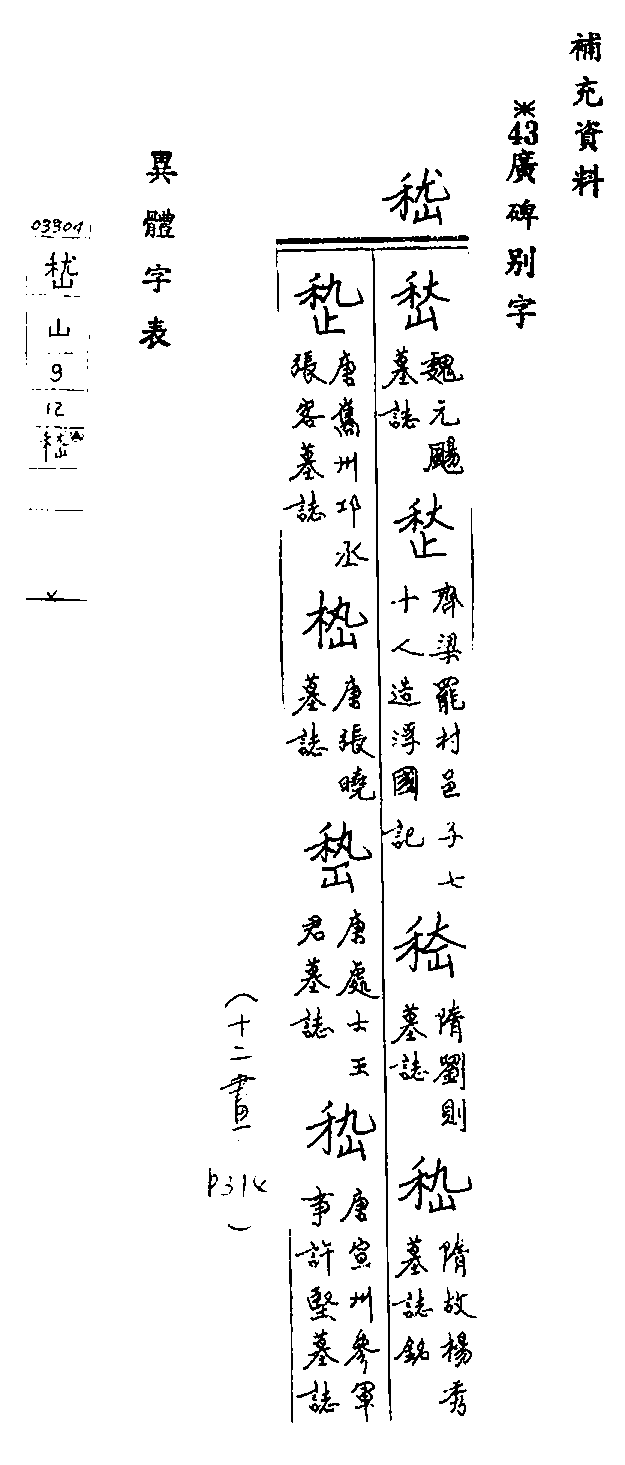 補充資料
※43廣碑別字
嵇
嵇 魏元颺墓誌
嵇 齊梁罷村邑子七十人造浮國記
嵇 隋劉則墓誌
嵇 隋故楊秀墓誌銘
嵇 唐舊州邛丞張客墓誌
嵇 唐張曉墓誌
嵇 唐處士王君墓誌
嵇 唐宣州參軍事許堅墓誌
(十二畫 P314)
異體字表
03904
嵇
山
9
12
嵇